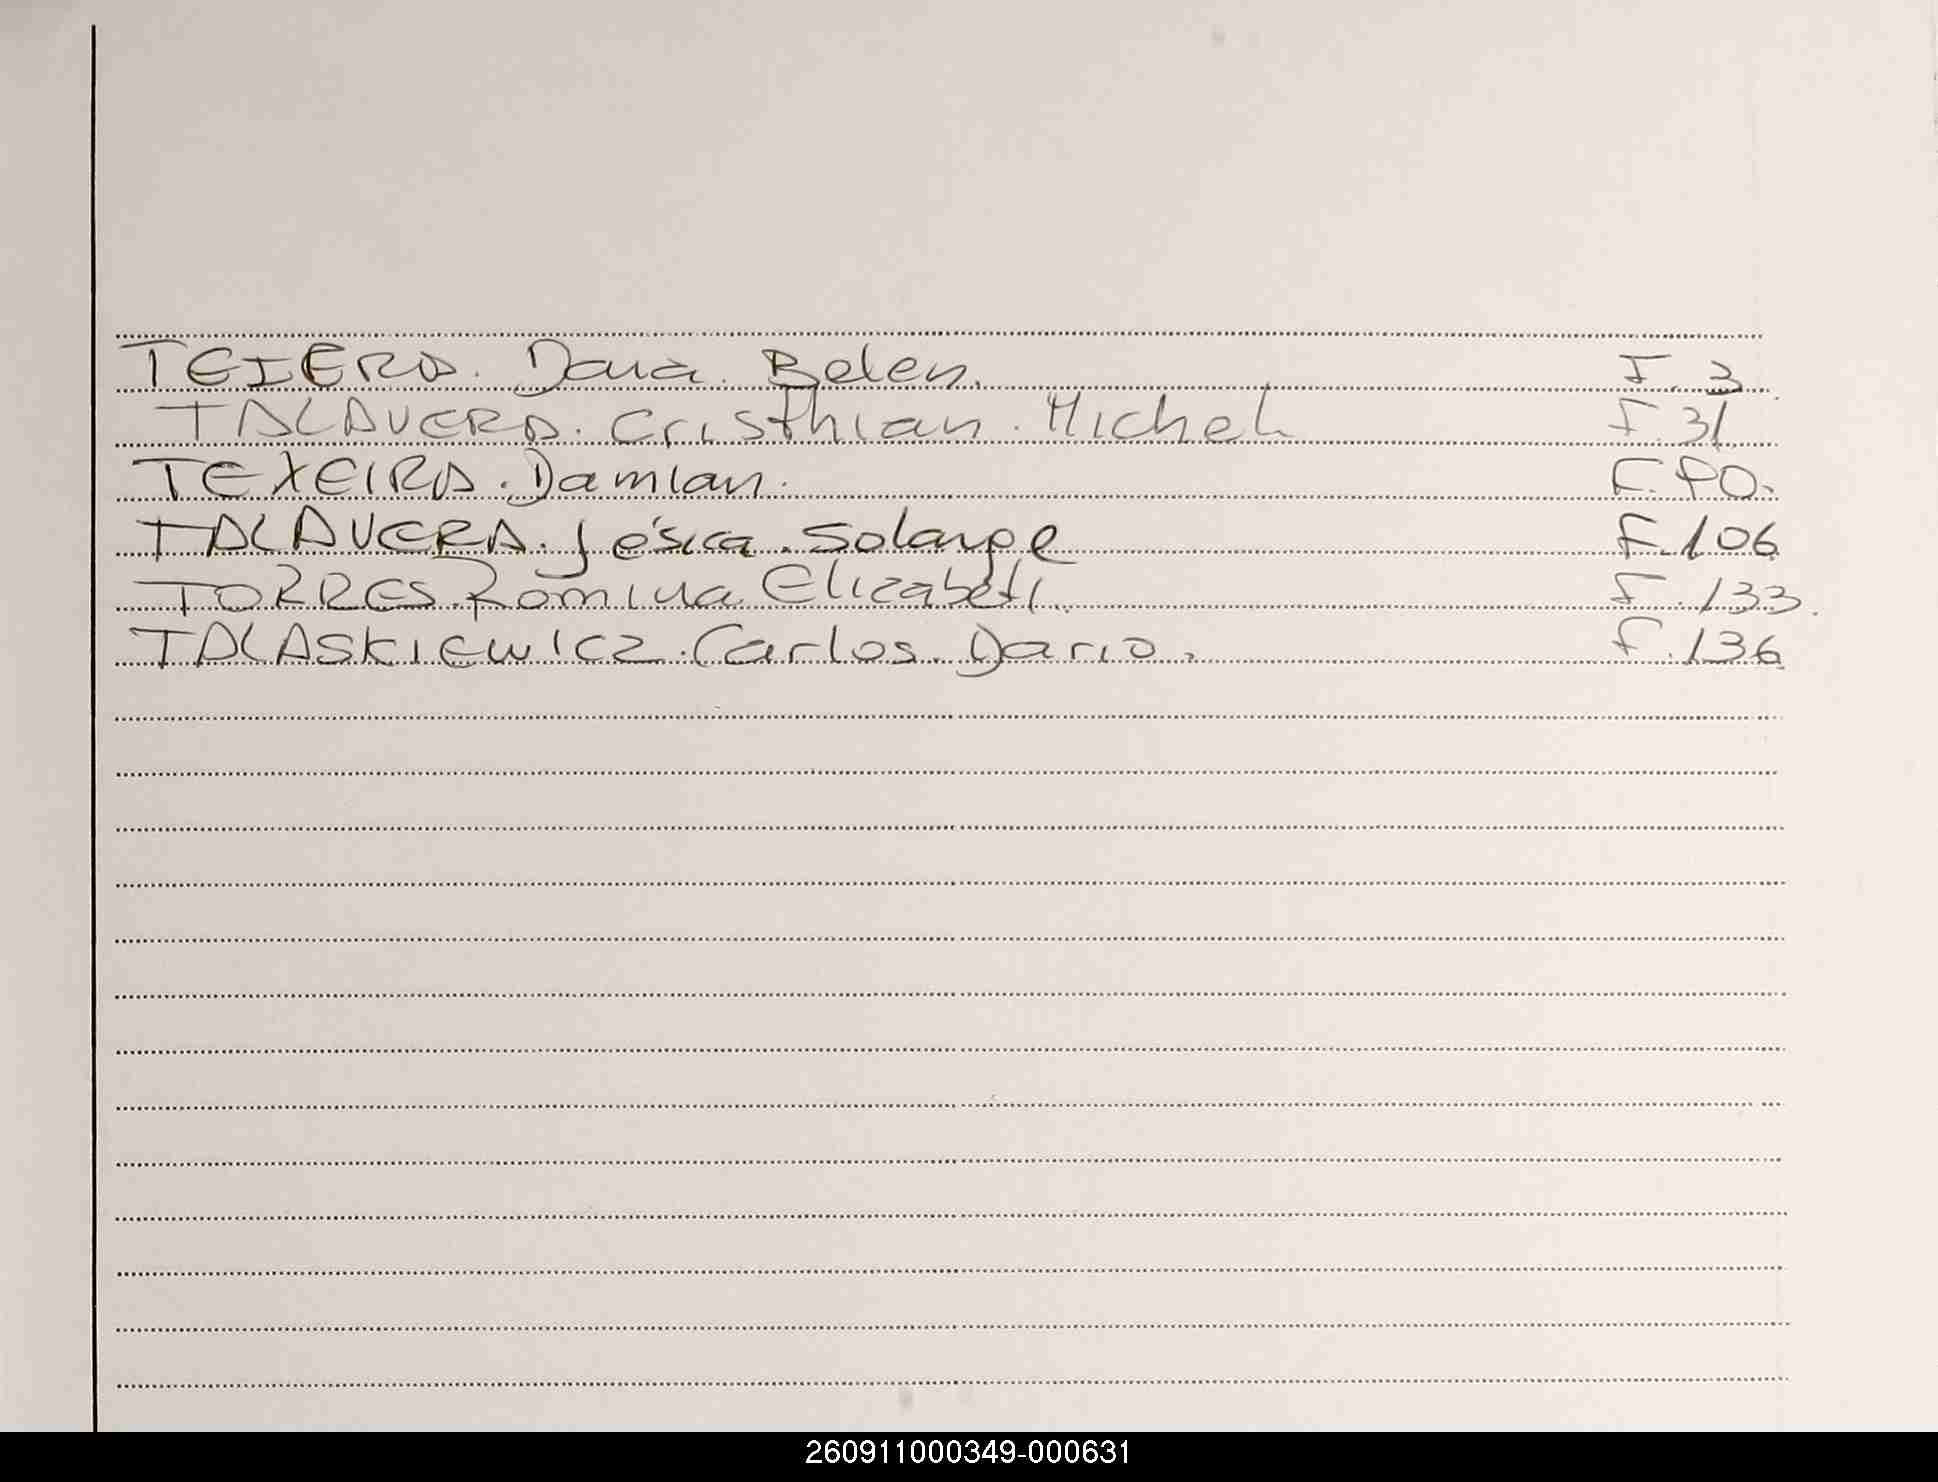 TEJERA. Dana. Belen. F. 3
TALAVERA. Cristhian. Michel F. 31
TEXEIRA. Damian. F. 80.
TALAVERA. Jésica. Solange F. 106
TORRES. Romina Elizabeth. F. 133.
TALASKIEWICZ. Carlos. Dario. F. 136
260911000349-000631